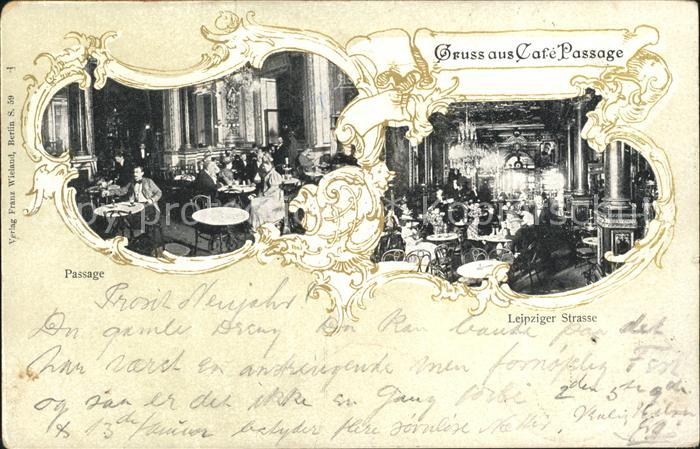 Gruss aus Café Passage
Verlag Franz Wieland, Berlin S. 59
Passage
Leipziger Strasse
Prosit Neujahr!
Du gamle Dreng Du kan bande paa det
har været en anstrengende men fornøjelig Fest
og saa er det ikke en Gang forbi 2den 5te
& 13de Januar betyder flere søvnløse Nætter.